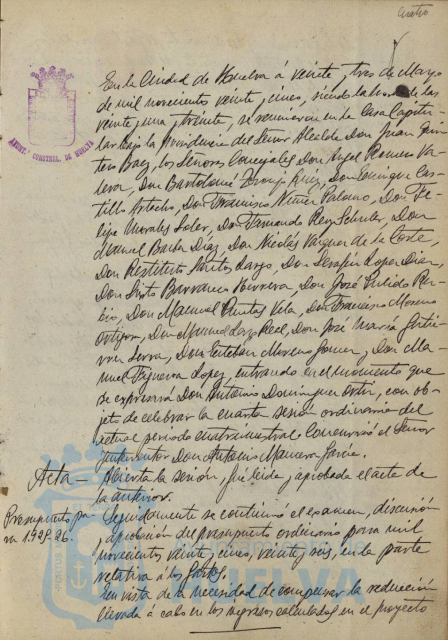 Cuatro
AYUNT.º CONSTNAL. DE HUELVA
En la Ciudad de Huelva á veinte y tres de Marzo
de mil novecientos veinte y cinco, siendo la hora de las
veinte y una y treinta, se reunieron en la Casa Capitu-
lar bajo la Presidencia del Señor Alcalde Don Juan
Baez, los Señores Concejales Don Angel Romero Va-
lera, Don Bartolomé Ruiz, Don Enrique Cas-
tillo Artacho, Don Francisco Palomo, Don Fe-
lipe Morales Soler, Don Fernando Rey Don
Manuel Barba Diaz, Don Nicolás Vazquez de la Corte,
Don Restituto Don Serafin Lopez Diaz,
Don Sixto Barranco Don José Pulido Ru-
bio, Don Manuel Vela, Don Francisco Moreno
Ortega, Don Manuel Real, Don José María Gutié-
rrez Serra, Don Esteban Moreno Gomez y Don Ma-
nuel Figueroa Lopez, entrando en el momento que
se expresará Don Antonio Dominguez Ortiz, con ob-
jeto de celebrar la cuarta sesión ordinaria del
actual periodo cuatrimestral. Concurrió el Señor
Interventor Don Antonio
Acta — Abierta la sesión, fué leida y aprobada el acta de
la anterior.
Presupuesto pa-
ra 1925-26.
Seguidamente se continuó el examen, discusión
y aprobación del presupuesto ordinario para mil
novecientos veinte y cinco, veinte y seis, en la parte
relativa á los Gastos.
En vista de la necesidad de compensar la reducción
llevada á cabo en los ingresos calculados en el proyecto
PORTUS
HUELVA